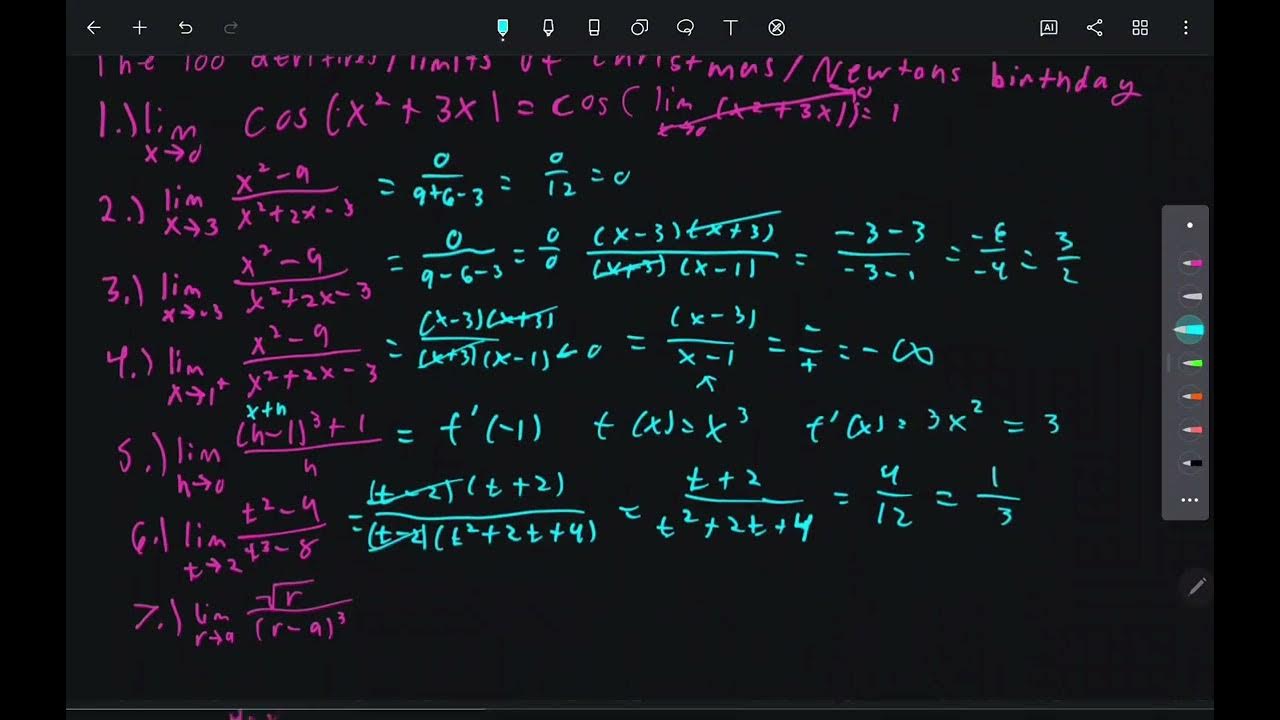 The 100 deritives/limits of Christmas/Newtons birthday
1.) lim x→0 cos(x² + 3x) = cos(lim x→0 (x² + 3x)) = 1
2.) lim x→3 (x² - 9)/(x² + 2x - 3) = 0/(9+6-3) = 0/12 = 0
3.) lim x→-3 (x² - 9)/(x² + 2x - 3) = 0/(9-6-3) = 0/0 (x-3)(x+3)/(x+3)(x-1) = (-3-3)/(-3-1) = -6/-4 = 3/2
4.) lim x→1⁺ (x² - 9)/(x² + 2x - 3) = (x-3)(x+3)/(x+3)(x-1) < 0 = (x-3)/(x-1) = -/+ = -∞
x+h
5.) lim h→0 ((h-1)³ + 1)/h = f'(-1) f(x) = x³ f'(x) = 3x² = 3
6.) lim t→2 (t² - 4)/(t³ - 8) = (t-2)(t+2)/(t-2)(t²+2t+4) = (t+2)/(t²+2t+4) = 4/12 = 1/3
7.) lim r→9 √r/(r-9)³